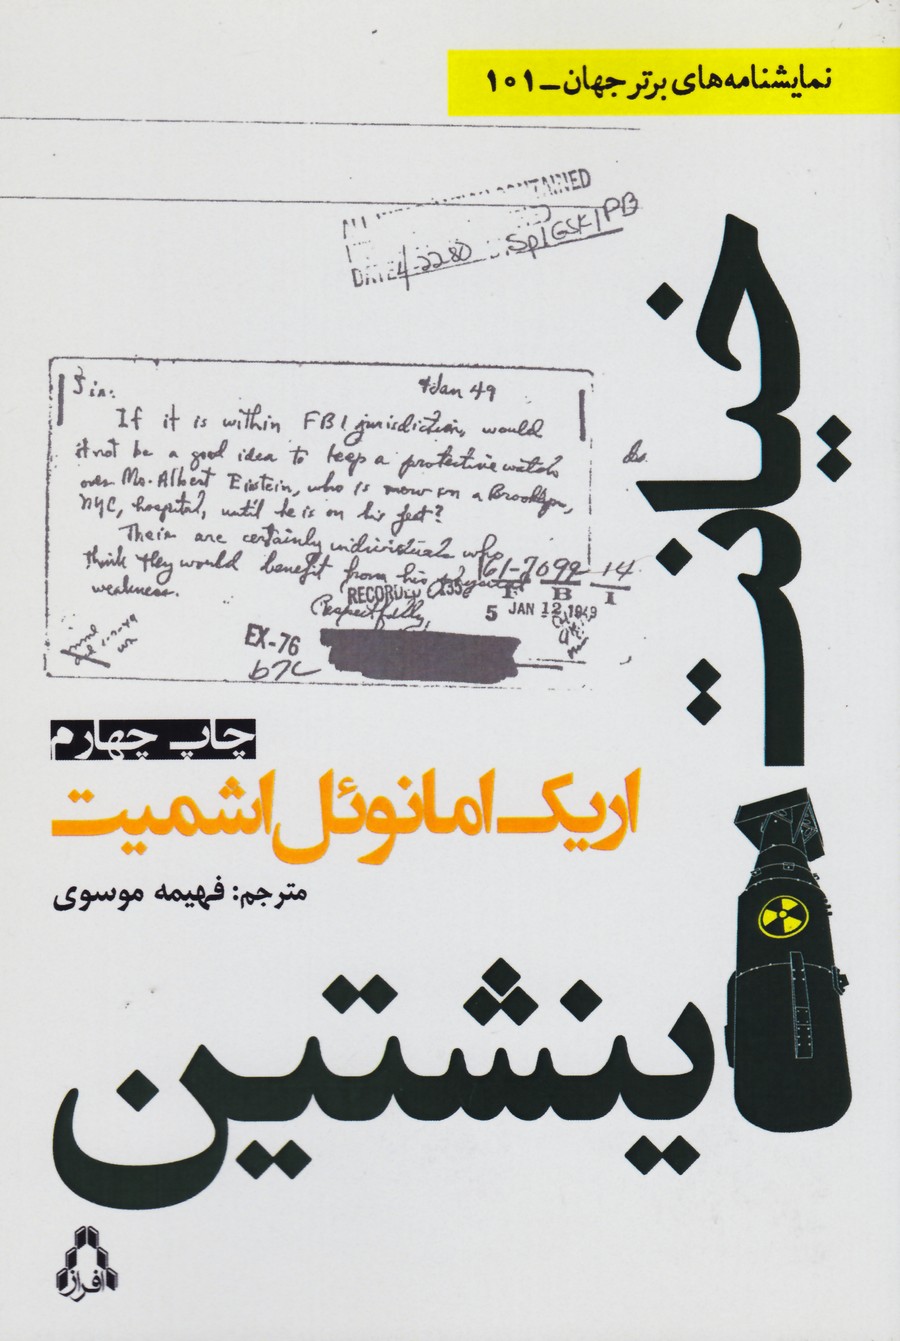 نمایشنامه‌های برتر جهان_۱۰۱
CONTAINED
DATE 4-22-80 Sp1GSK/PB
Sir:
4 Jan 49
If it is within FBI jurisdiction, would
it not be a good idea to keep a protective watch
over Mr. Albert Eistein, who is now in a Brooklyn,
NYC, hospital, until he is on his feet?
Their are certainly individuals who
think they would benefit from his physical
weakness.
61-7099-14
RECORDED
F B I
Respectfully,
5 JAN 12 1949
EX-76
b7C
خیانت
چاپ چهارم
اریک امانوئل اشمیت
مترجم: فهیمه موسوی
اینشتین
افراز